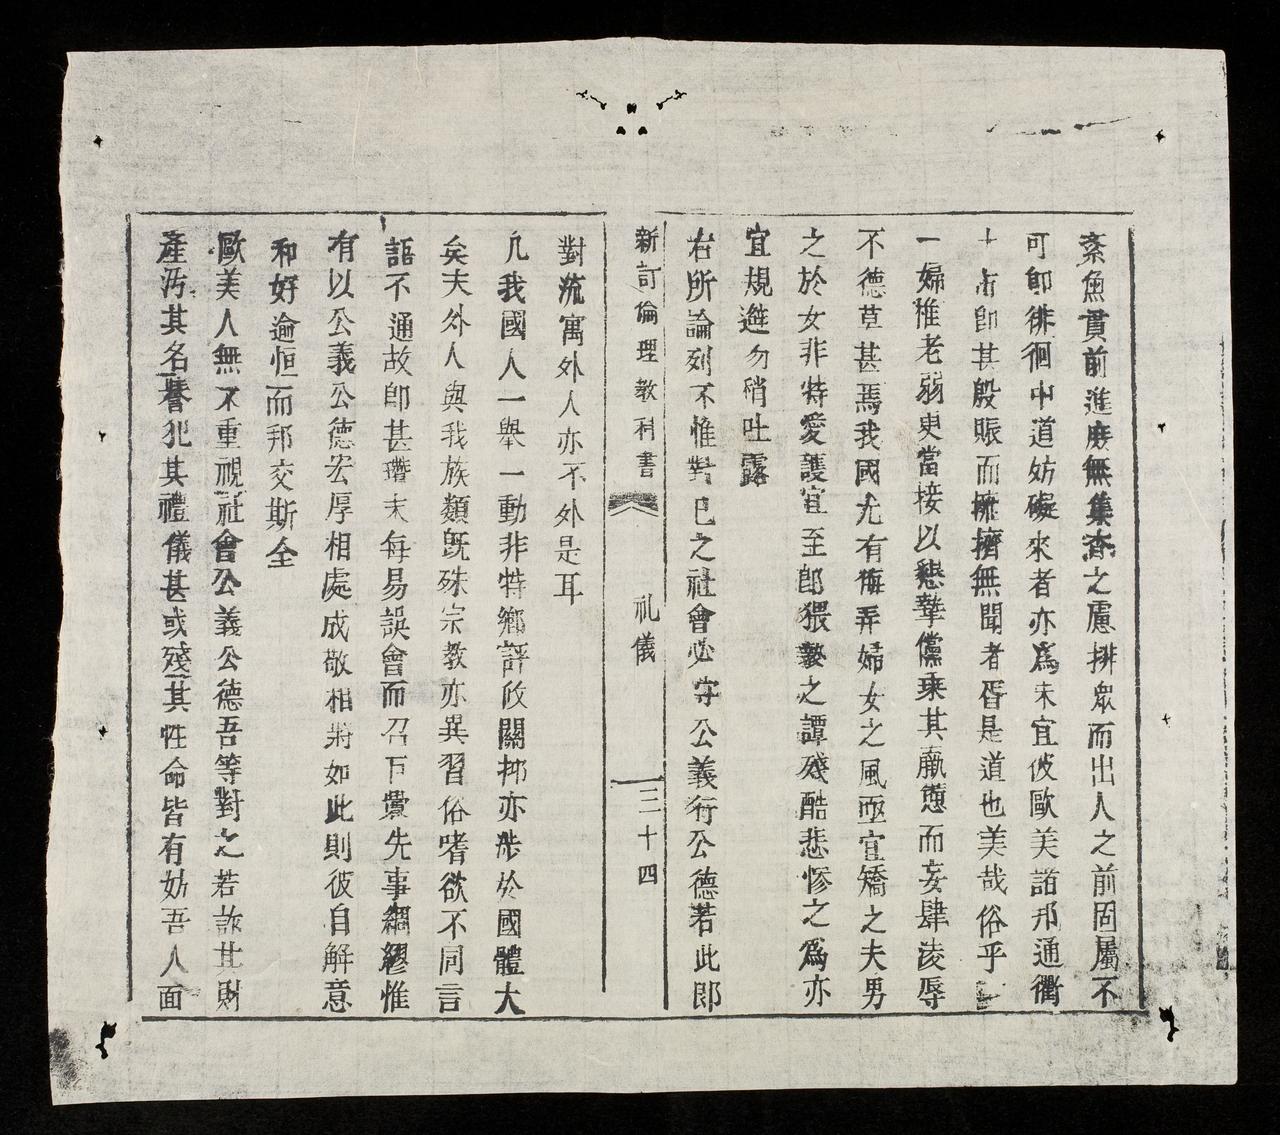 紊魚貫前進庶無集沓之慮排衆而出人之前固屬不
可卽徘徊中道妨礙來者亦爲未宜彼歐美諸邦通衢
十市卽甚殷賑而擁擠無聞者胥是道也美哉俗乎
一婦稚老弱更當接以懇摯儻乘其羸憊而妄肆凌辱
不德莫甚焉我國尤有侮弄婦女之風亟宜矯之夫男
之於女非特愛護宜至卽猥褻之譚殘酷悲慘之爲亦
宜規避勿稍吐露
右所論列不惟對己之社會必守公義行公德若此卽
新訂倫理教科書 礼儀 三十四
對流寓外人亦不外是耳
凡我國人一舉一動非特鄉評攸關抑亦涉於國體大
矣夫外人與我族類旣殊宗教亦異習俗嗜欲不同言
語不通故卽甚瓚末每易誤會而召巨釁先事綢繆惟
有以公義公德宏厚相處成敬相將如此則彼自解意
和好逾恒而邦交斯全
歐美人無不重視社會公義公德吾等對之若詐其財
產汚其名譽犯其禮儀甚或殘其性命皆有妨吾人面